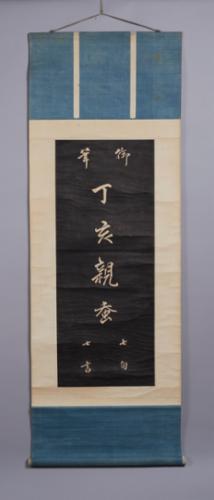 御筆
丁亥親蚕
七旬
七書